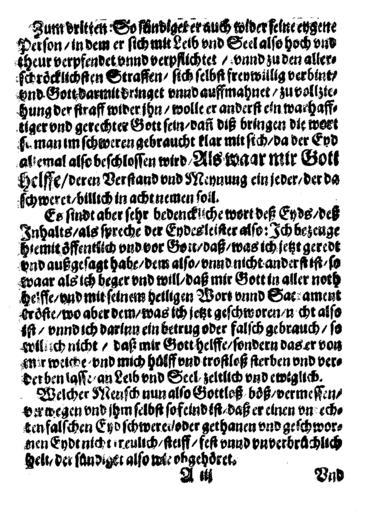 Zum dritten: So sündiget er auch wider seine eygene
Person / in dem er sich mit Leib vnd Seel also hoch vnd
theur verpfendet vnnd verpflichtet / vnnd zu den aller-
schröcklichsten Straffen / sich selbst freywillig verbint /
vnd Gott darmit dringet vnnd auffmahnet / zu vollzie-
hung der straff wider ihn / wolle er anderst ein warhaff-
tiger vnd gerechter Gott sein / dañ diß bringen die wort
so man im schweren gebraucht klar mit sich / da der Eyd
allemal also beschlossen wird / Als waar mir Gott
helffe / deren Verstand vnd Meynung ein jeder / der da
schweret / billich in acht nemen soll.
Es sindt aber sehr bedenckliche wort deß Eyds / deß
Inhalts / als spreche der Eydesleister also: Ich bezeuge
hiemit öffentlich vnd vor Gott / daß / was ich jetzt geredt
vnd außgesagt habe / dem also / vnnd nicht anderst ist / so
waar als ich beger vnd will / daß mir Gott in aller noth
helffe / vnd mit seinem heiligen Wort vnnd Sacrament
tröste / wo aber dem / was ich jetzt geschworen / nicht also
ist / vnnd ich darinn ein betrug oder falsch gebrauch / so
will ich nicht / daß mir Gott helffe / sondern das er von
mir weiche / vnd mich hülff vnd trostloß sterben vnd ver-
derben lasse / an Leib vnd Seel / zeitlich vnd ewiglich.
Welcher Mensch nun also Gottloß / böß / vermessen /
verwegen vnd ihm selbst so feind ist / daß er einen vnrech-
ten falschen Eyd schweret / oder gethanen vnd geschwor-
nen Eydt nicht treulich / steiff / fest vnnd vnverbrüchlich
helt / der sündiget also wie obgehöret.
A iij Vnd